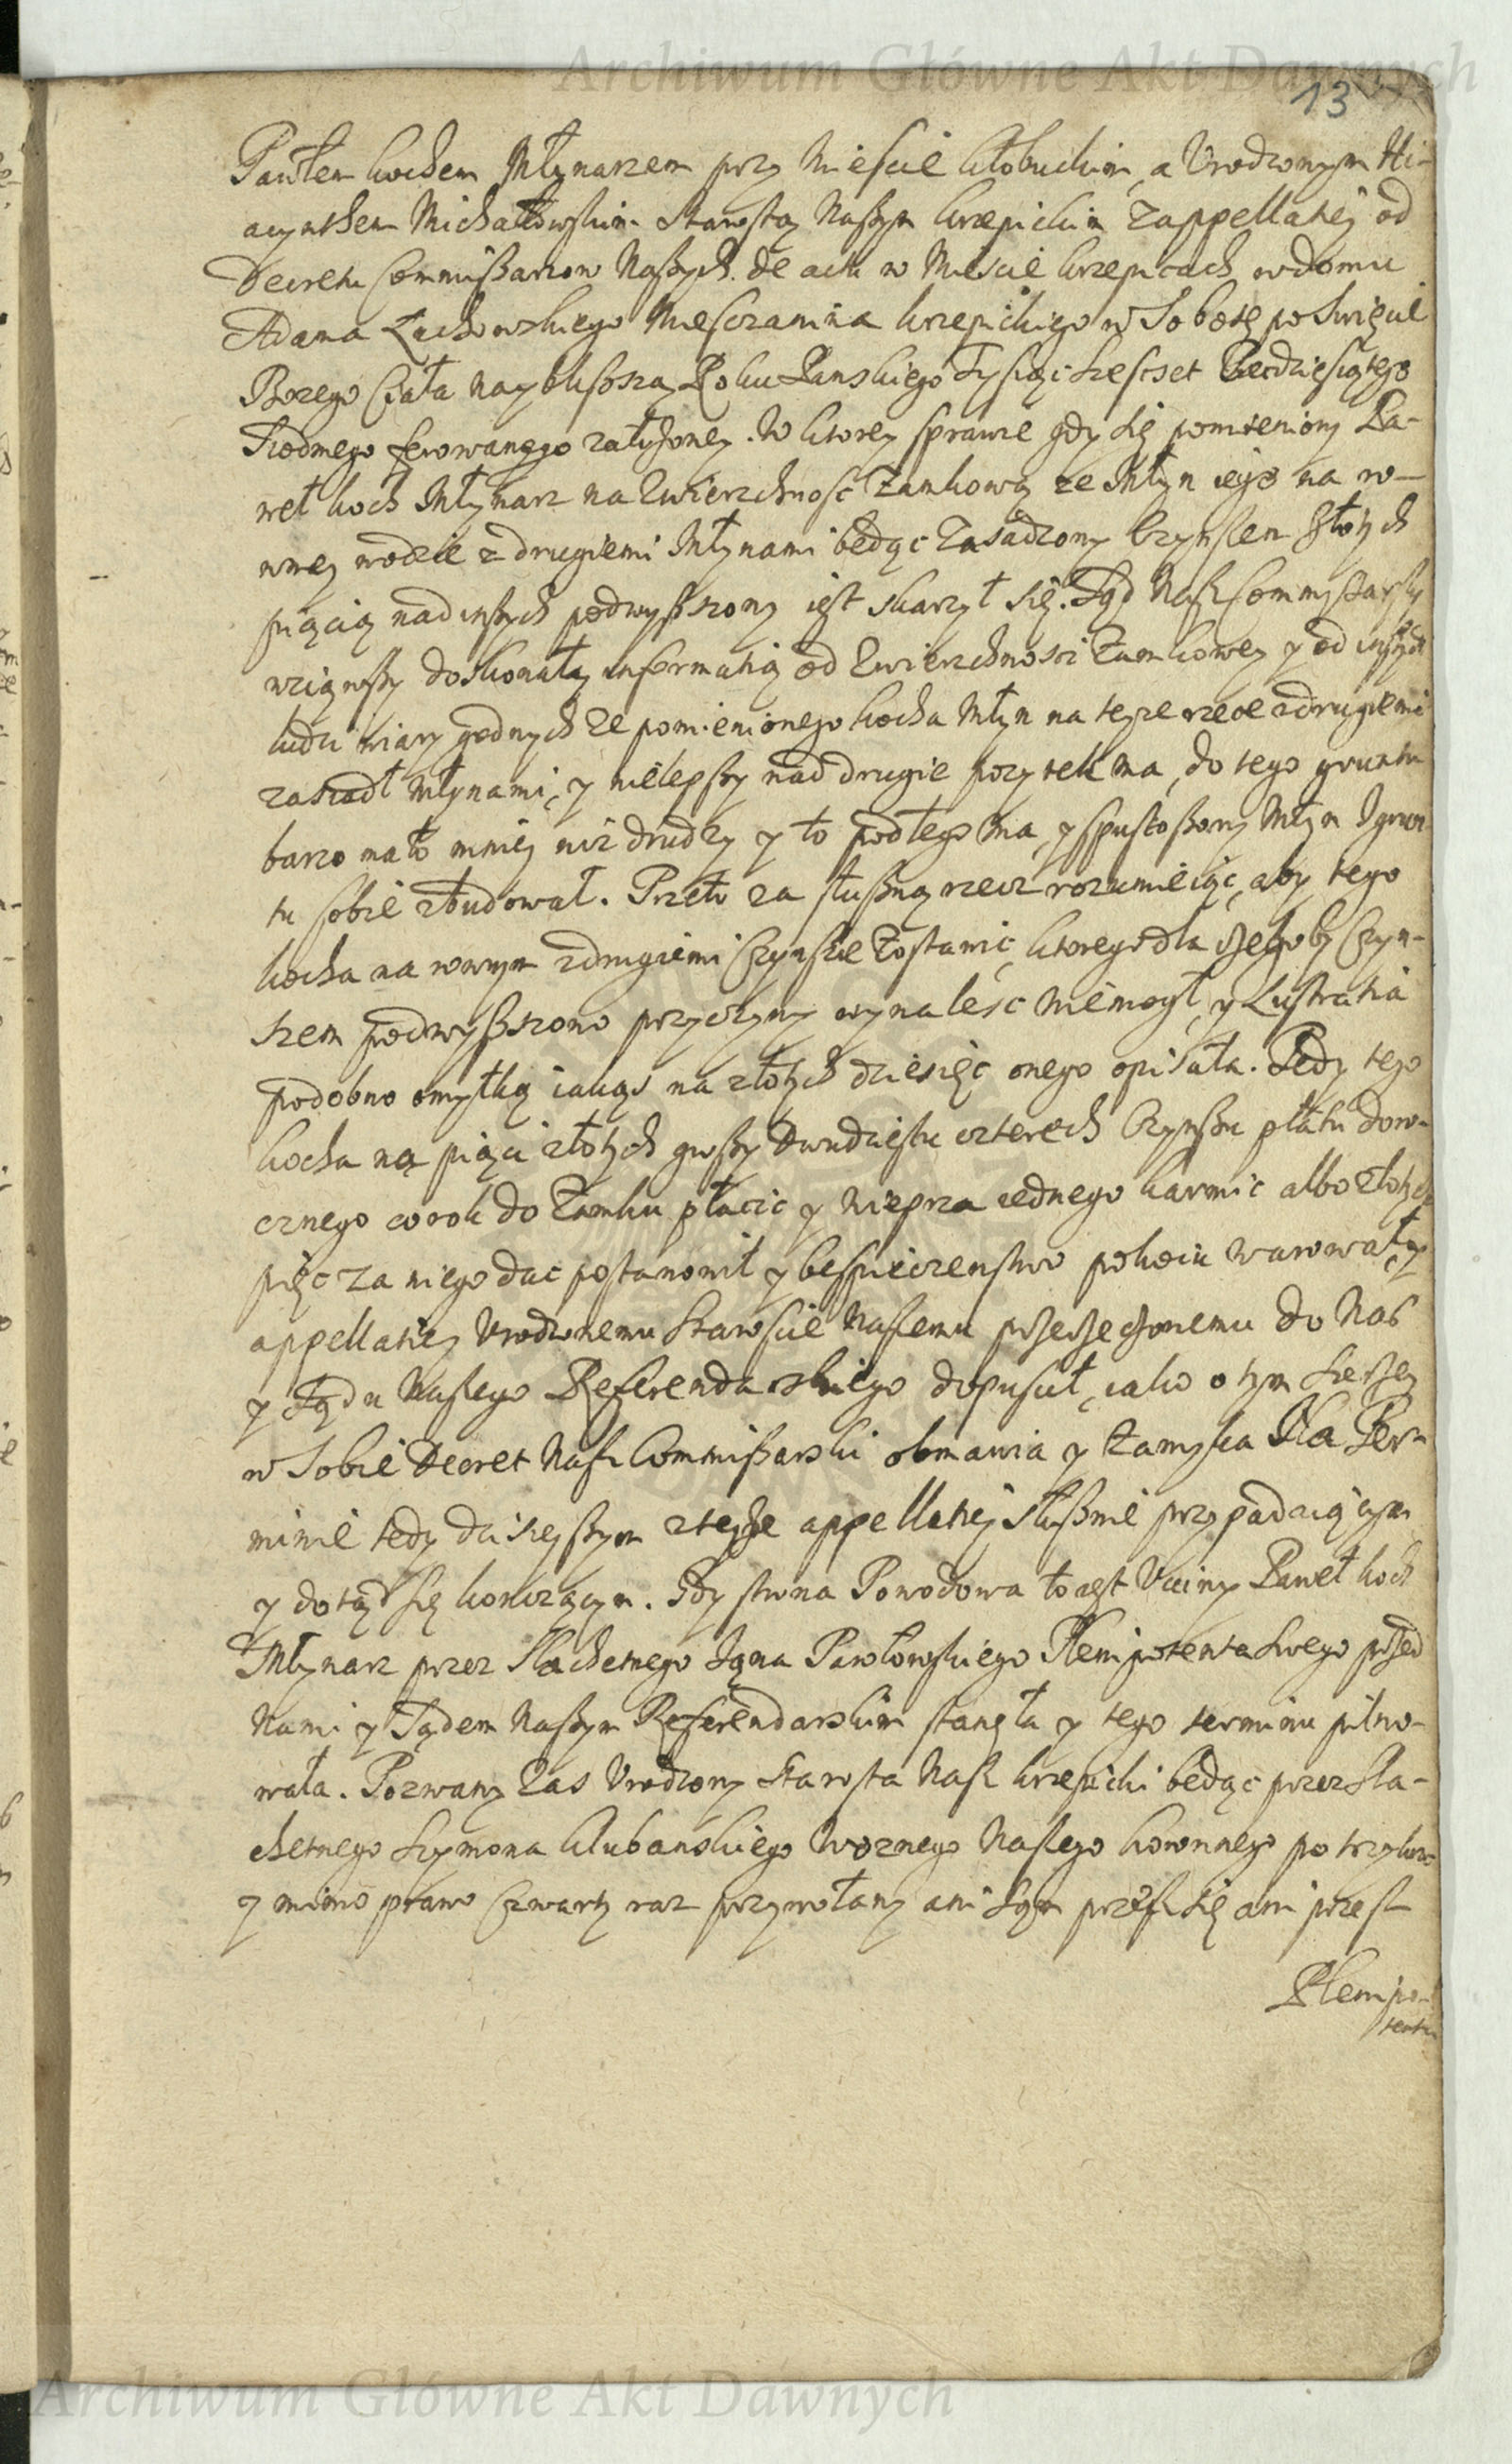 Archiwum Główne Akt Dawnych
13
Pawłem Kochem Młynarzem przy Miescie Kłobuckim, a Vrodzonym Hi-
acynthem Michałowskim Starostą Naszym Krzepickim z appellatiej od
Decretu Commissarzow Naszych de actu w Miescie Krzepicach w domu
Adama Lachowskiego Miesczanina Krzepickiego w Sobotę po Swięcie
Bozego Ciała nayblisszą Roku Panskiego Tysiąc Szescset Piecdziesiątego
Siodmego ferowanego załozoney. W ktorey sprawie gdy się pomieniony Pa-
weł Koch Młynarz na Zwierzchnosc Zamkową ze Młyn iego na ro-
wney wodzie z drugiemi Młynami będąc zasadzony Czynszem Złotych
pięcią nad inszych podwyszszony iest skarzył się. Sąd Nasz Commissarski
wziąwszy doskonałą informatią od Zwierzchnosci Zamkowey y od inszych
ludzi wiary godnych ze pomienionego Kocha Młyn na teyze rzece z drugiemi
zasiadł Młynami, y nielepszy nad drugie pozytek ma, do tego gruntu
barzo mało mniey niz drudzy y to podłego ma, y spustoszony Młyn z grun-
tu sobie zbudował. Przeto za słuszną rzecz rozumieiąc, aby tego
Kocha na rownym z drugiemi Czynszie zostawic, ktorego dla czegoby Czyn-
szem podwyszszono przyczyny wynalesc niemogł, y Lustratia
podobno omyłką iakąs na złotych dziesięc onego opisała. Tedy tego
Kocha na pięci złotych groszy dwudziestu czterech Czynszu płatu doro-
cznego co rok do Zamku płacic y Wieprza iednego karmic albo złotych
pięc za niego dac postanowił y bespieczenstwo pokoiu warował, y
appellatiey Vrodzonemu Staroscie Naszemu przerzeczonemu do Nas
y Sądu Naszego Referendarskiego dopuscił, iako o tym szerzey
w sobie Decret Nasz Commissarski obmawia y zamyka. Na Ter-
minie tedy dzisieyszym z teyze appellatiej słusznie przypadaiącym
y dotąd się konczącym. Gdy strona Powodowa to iest Vcciwy Paweł Koch
Młynarz przez Slachetnego Jana Pawłowskiego Plenipotenta swego przed
Nami y Sądem Naszym Referendarskim stanęła y tego terminu pilno-
wała. Pozwany zas Vrodzony Starosta Nasz Krzepicki będąc przez Sla-
chetnego Szymona Klubanskiego Woznego Naszego Koronnego po trzykroc
y mimo prawo czwarty raz przywołany ani sam przez się ani przesz
Plenipo-
tenta
Archiwum Główne Akt Dawnych